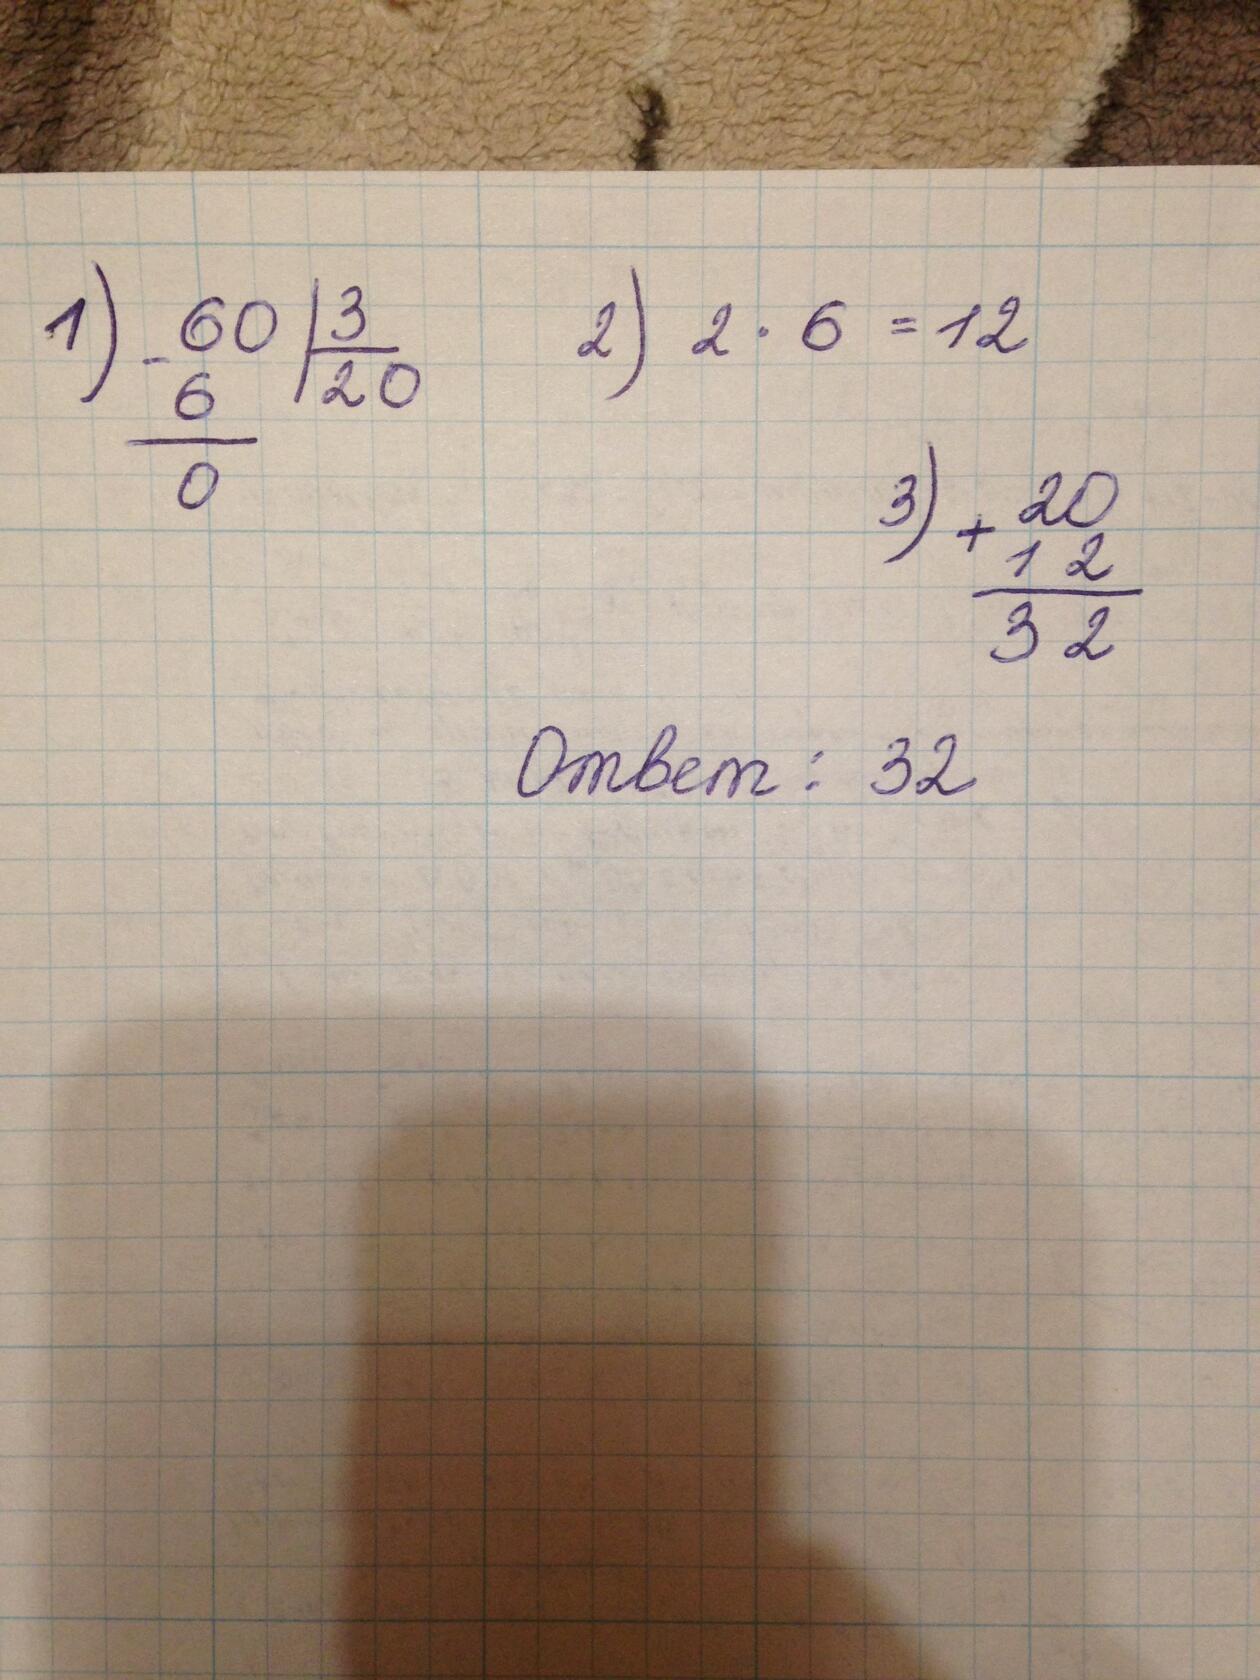 1) - 60 | 3
6 20
0
2) 2 · 6 = 12
3) + 20
12
32
Ответ: 32